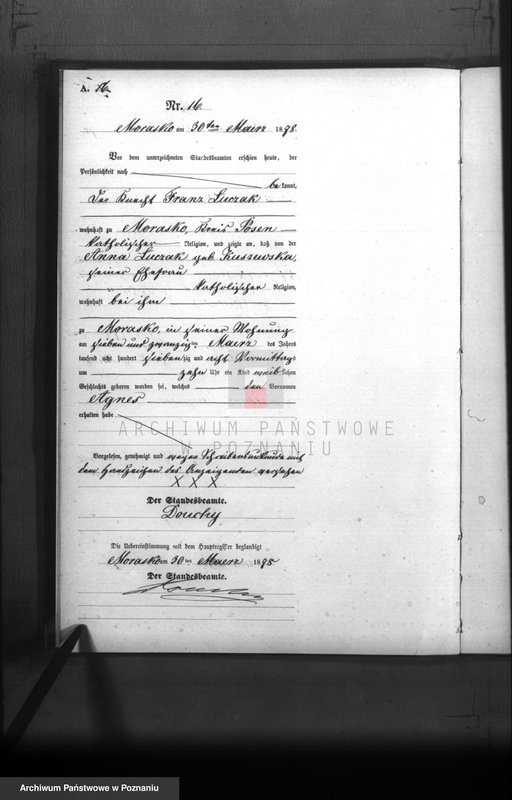 A.
Nr. 16
Morasko am 30ten Maerz 1878.
Vor dem unterzeichneten Standesbeamten erschien heute, der
Persönlichkeit nach
bekannt,
Der Knecht Franz Luczak
wohnhaft zu Morasko, Kreis Posen
katholischer Religion, und zeigte an, daß von der
Anna Luczak geb. Kuszewska,
seiner Ehefrau
katholischer Religion,
wohnhaft bei ihm
zu Morasko, in seiner Wohnung
am sieben und zwanzigten Maerz des Jahres
tausend acht hundert siebenzig und acht Vormittags
um zehn Uhr ein Kind weiblichen
Geschlechts geboren worden sei, welches den Vornamen
Agnes
erhalten habe
ARCHIWUM PAŃSTWOWE
W POZNANIU
Vorgelesen, genehmigt und wegen Schreibensunkunde mit
dem Handzeichen des Anzeigenden versehen
X X X
Der Standesbeamte.
Douchy
Die Uebereinstimmung mit dem Hauptregister beglaubigt
Morasko am 30 ten Maerz 1878
Der Standesbeamte.
Archiwum Państwowe w Poznaniu